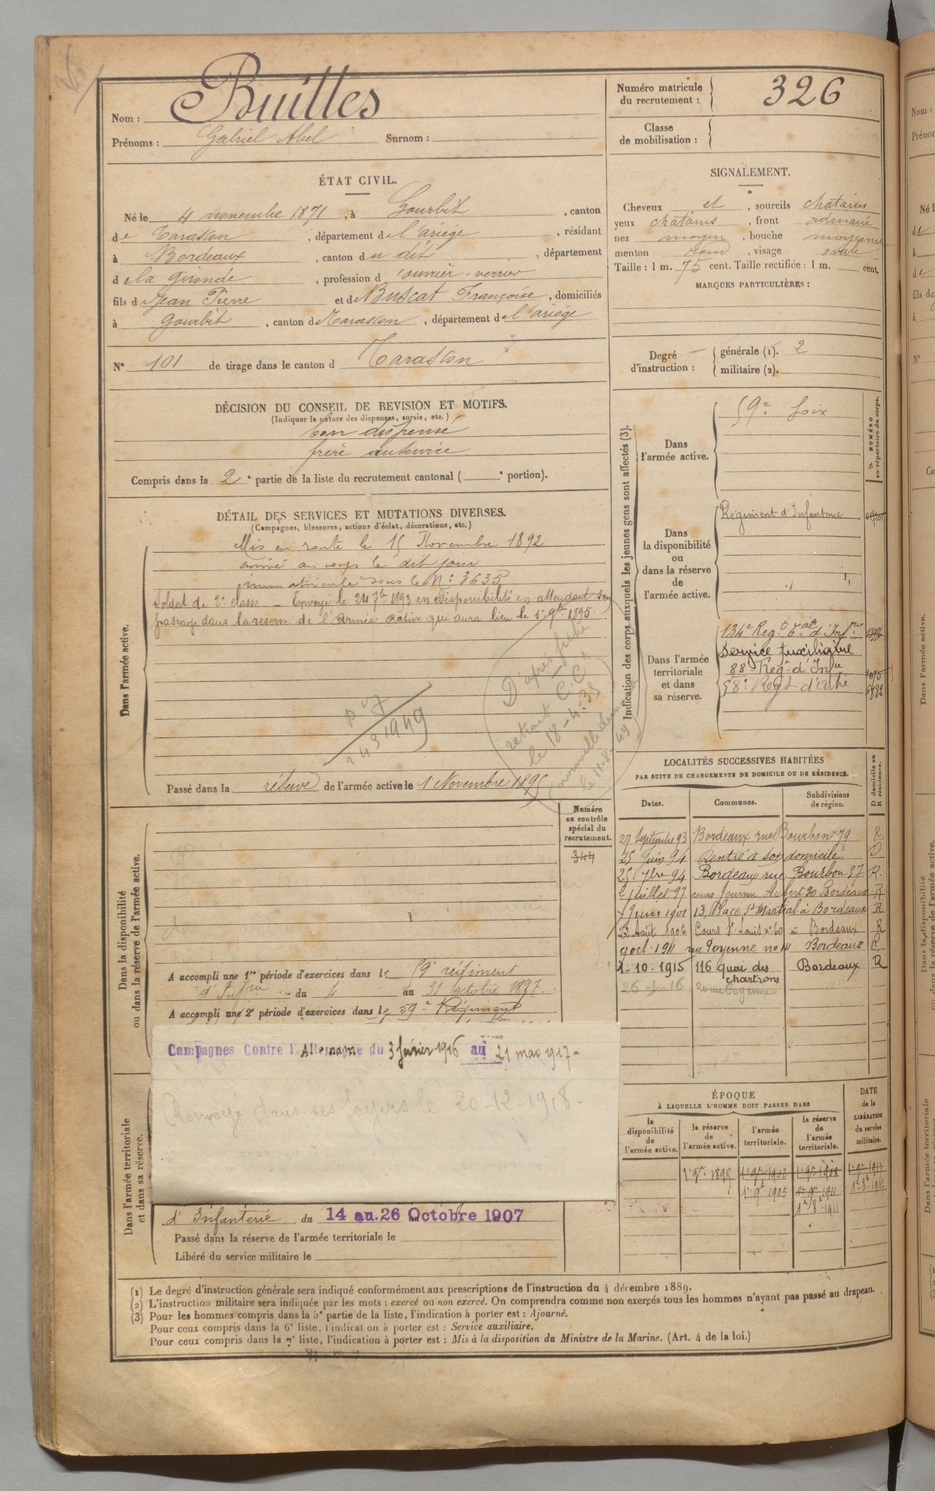 Nom : Buittes
Prénoms : Gabriel Abel Surnom :
Numéro matricule du recrutement : 326
Classe de mobilisation :
ÉTAT CIVIL.
Né le 4 novembre 1871, à Gourbit, canton
de Tarascon, département de l'ariège, résidant
à Bordeaux, canton du dit, département
de la Gironde, profession d'ouvrier-verrier
fils de Jean Pierre et de Buscat Françoise, domiciliés
à Gourbit, canton de Tarascon, département de l'ariège
N° 101 de tirage dans le canton d Tarascon
SIGNALEMENT.
Cheveux et, sourcils châtains
yeux châtains, front ordinaire
nez moyen, bouche moyenne
menton rond, visage ovale
Taille : 1 m. 75 cent. Taille rectifiée : 1 m. cent.
MARQUES PARTICULIÈRES :
Degré d'instruction : générale (1). 2
militaire (2).
DÉCISION DU CONSEIL DE REVISION ET MOTIFS.
(Indiquer la nature des dispenses, sursis, etc.)
bon dispensé
frère au service
Compris dans la 2e partie de la liste du recrutement cantonal ( e portion).
DÉTAIL DES SERVICES ET MUTATIONS DIVERSES.
(Campagnes, blessures, actions d'éclat, décorations, etc.)
Dans l'armée active.
Mis en route le 15 Novembre 1892
arrivé au corps le dit jour
immatriculé sous le N° : 3635
Soldat de 2e classe. Envoyé le 24 7bre 1893 en disponibilité en attendant son
passage dans la réserve de l'Armée active qui aura lieu le 1er 9bre 1895.
D'après fiche
retrait C.C.
le 18-4-35
24 3 1949
Passé dans la réserve de l'armée active le 1 Novembre 1895
Indication des corps auxquels les jeunes gens sont affectés (3).
NUMÉRO au répertoire du corps.
Dans l'armée active.
59e Foix
Dans la disponibilité ou dans la réserve de l'armée active.
Régiment d'Infanterie
Dans l'armée territoriale et dans sa réserve.
134e Regt tal d'Infrie
Service Auxiliaire
88 Regt d'Infie
58e Regt d'Arthie
LOCALITÉS SUCCESSIVES HABITÉES
PAR SUITE DE CHANGEMENTS DE DOMICILE OU DE RÉSIDENCE.
Dates. Communes. Subdivisions de région. D domicile ou R résidence.
27 Septembre 93 Bordeaux rue Bourbon 79 R
25 Juin 94 Rentré à son domicile D
25 8bre 94 Bordeaux rue Bourbon 57 R
2 Juillet 97 cours Journu Aubert 20 Bordeaux R
7 Juin 1901 13, Place St Martial à Bordeaux R
13 Août 1906 Cours St Louis n° 60 à Bordeaux R
9 oct. 1911 rue Poyenne no 14 Bordeaux R
2-10-1915 116 quai des chartrons Bordeaux R
Dans la disponibilité ou dans la réserve de l'armée active.
Numéro au contrôle spécial du recrutement.
344
A accompli une 1re période d'exercices dans le 59e régiment
d'Infrie du 4 au 31 octobre 1897.
A accompli une 2e période d'exercices dans le 59e Régiment
Campagnes Contre l'Allemagne du 3 février 1916 au 21 mai 1917
Renvoyé dans ses foyers le 20-12-1918
Dans l'armée territoriale et dans sa réserve.
d'Infanterie du 14 au 26 Octobre 1907
Passé dans la réserve de l'armée territoriale le
Libéré du service militaire le
ÉPOQUE
À LAQUELLE L'HOMME DOIT PASSER DANS
la disponibilité de l'armée active.
la réserve de l'armée active.
l'armée territoriale.
la réserve de l'armée territoriale.
DATE de la LIBÉRATION du service militaire.
1er 9bre 1895
(1) Le degré d'instruction générale sera indiqué conformément aux prescriptions de l'instruction du 4 décembre 1889.
(2) L'instruction militaire sera indiquée par les mots : exercé ou non exercé. On comprendra comme non exercés tous les hommes n'ayant pas passé au drapeau.
(3) Pour les hommes compris dans la 5e partie de la liste, l'indication à porter est : Ajourné.
Pour ceux compris dans la 6e liste, l'indication à porter est : Service auxiliaire.
Pour ceux compris dans la 7e liste, l'indication à porter est : Mis à la disposition du Ministre de la Marine. (Art. 4 de la loi.)